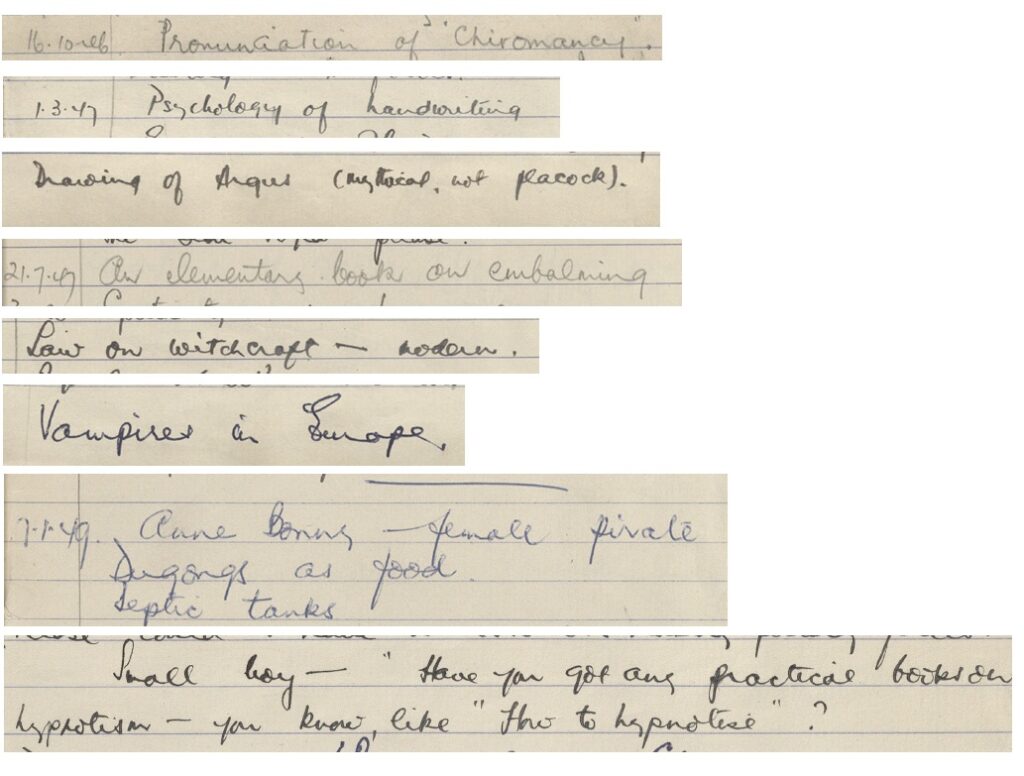 16.10.46 Pronunciation of "Chiromancy".
1.3.47 Psychology of handwriting
Drawing of Argus (mythical, not peacock).
21.7.47 An elementary book on embalming
Law on witchcraft — modern.
Vampires in Europe.
7.1.49. Anne Bonny — female pirate
Dugongs as food.
Septic tanks
Small boy — "Have you got any practical books on
hypnotism — you know, like "How to hypnotise" ?